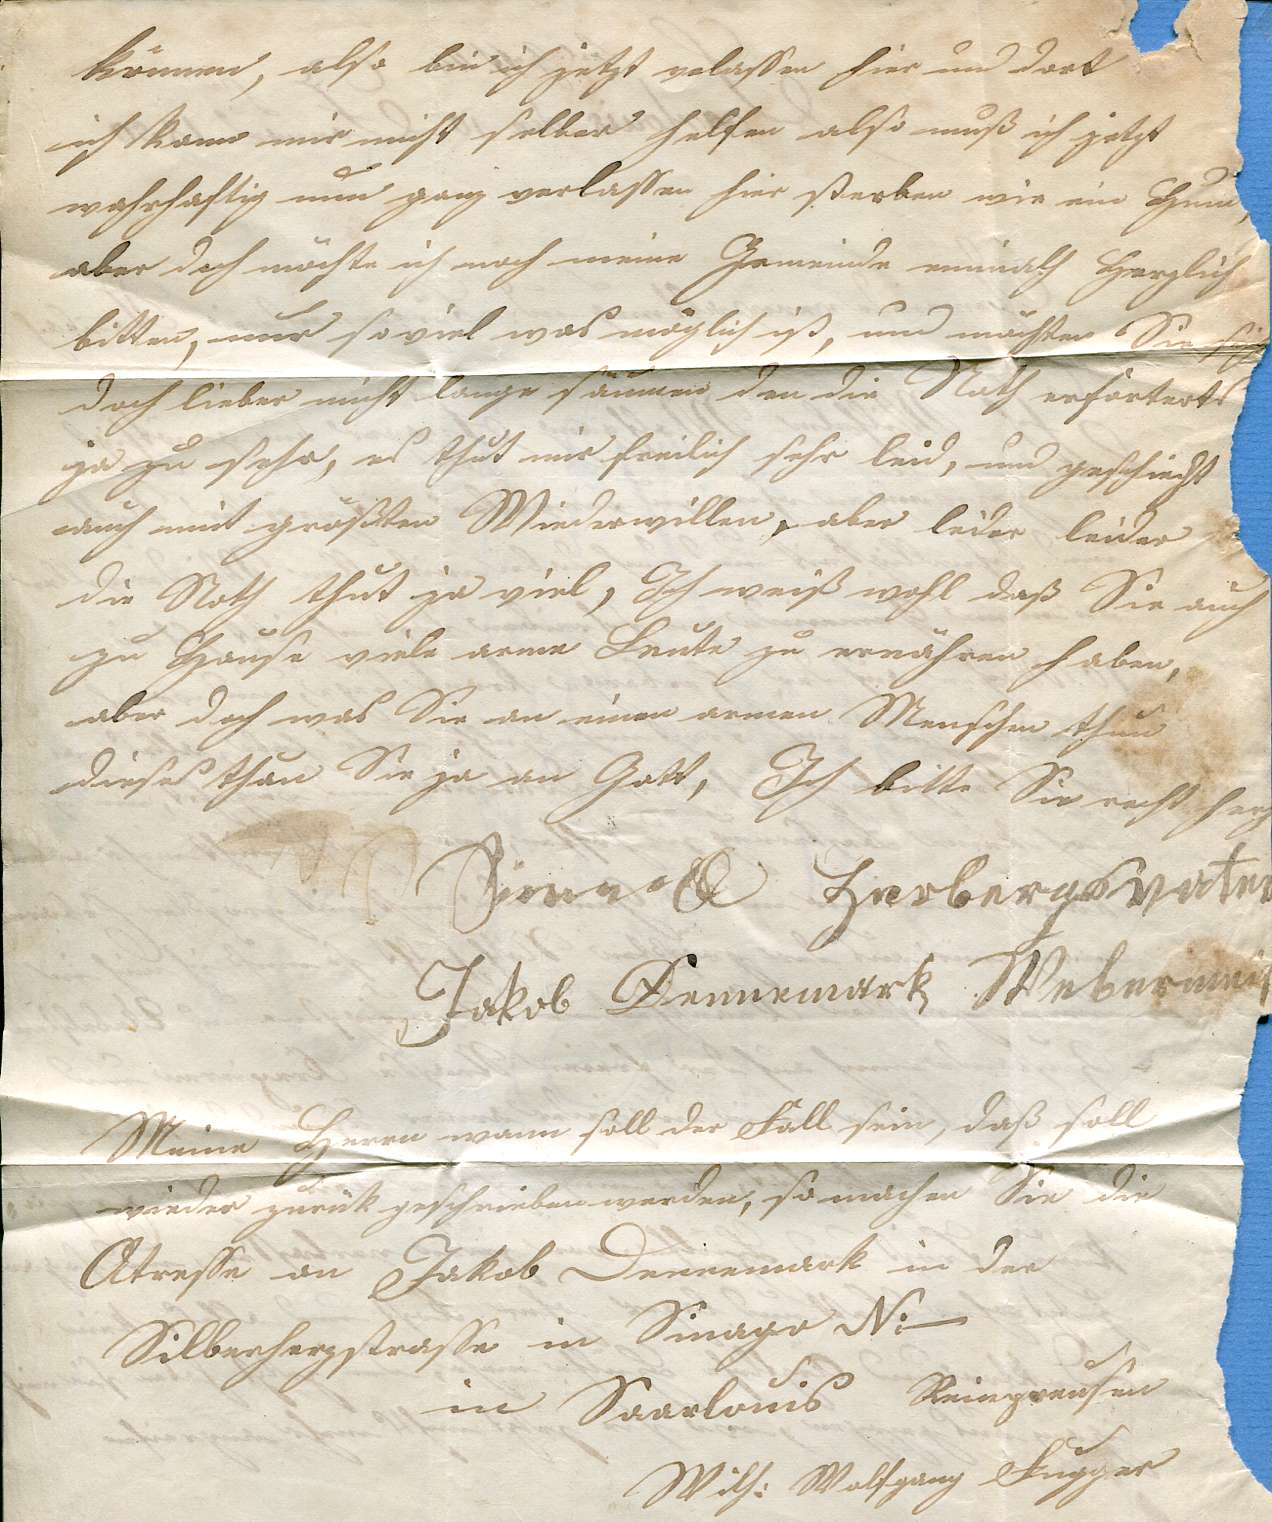 können, also bin ich jetzt verlassen hier und dort
ich kann mir nicht selber helfen also muß ich jetzt
wahrhaftig nun ganz verlassen hier sterben wie ein Hund,
aber doch möchte ich noch meine Gemeinde einmahl Herzlich
bitten, nur soviel was möglich ist, und möchten Sie
doch lieber nicht lange säumen den die Noth erfortert
ja zu sehr, es thut mir freilich sehr leid, und geschieht
auch mit größten Wiederwillen, aber leider leider
die Noth thut ja viel, Ich weiß wohl daß Sie auch
zu Hause viele arme Leute zu ernähren haben,
aber doch was Sie an einen armen Menschen thun
dieses thun Sie ja an Gott, Ich bitte Sie recht herz
Herbergsvater
Jakob Dennemark Webermeis
Meine Herrn wann soll der Fall sein, daß soll
wieder zurük geschrieben werden, so machen Sie die
Atresse an Jakob Dennemark in der
Silberherzstrasse in N:
in Saarlouis Reinpreusen
Wilh: Wolfgang Fugger